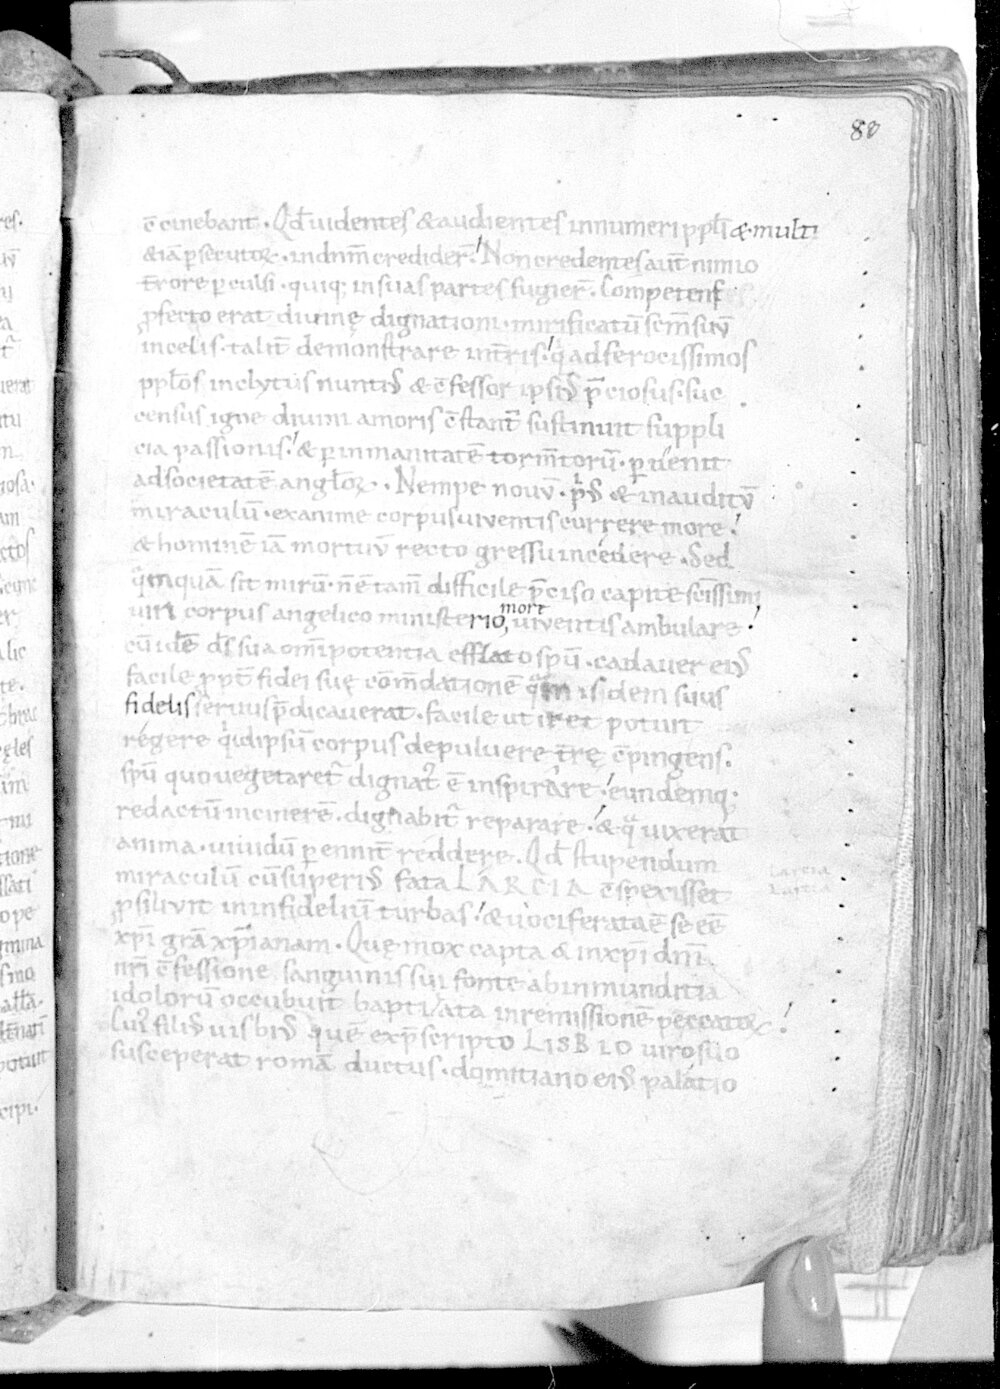 80
c̄cinebant. Qd̄ uidentes & audientes innumeri ppl̄i & multi
& iā ꝑsecutoꝝ. in dn̄m crediderr̄. Non credentes aut̄ nimio
t̄rore ꝑculsi. quiq; in suas partes fugier̄. Competens
ꝓfecto erat diuinę dignationi. mirificatū sc̄m suū
in celis. talit̄ demonstrare in t̄ris. qͥ ad ferocissimos
ppl̄os inclytus nuntiꝰ & c̄fessor ipsiꝰ p̄ciosus. suc
census igne diuini amoris c̄stant̄ sustinuit suppli
cia passionis. & ꝑ inmanitatē torm̄torū. ꝑuenit
ad societatē angl̄oꝝ. Nempe nouū. pͥꝰ & inauditū
miraculū. exanime corpus uiuentis currere more.
& hominē iā mortuū recto gressu incedere. Sed
qͣmquā sit mirū. n̄ ē tam̄ difficile p̄ciso capite sc̄issimi
uiri corpus angelico ministerio, uiuentis ambulare.
more
cū idē ds̄ sua om̄ipotentia efflato spū. cadauer eiꝰ
facile ꝓpt̄ fidei suę com̄dationē qͣm isdem suus
fidelis seruus p̄dicauerat. facile ut iret potuit
regere qͥ id ipsū corpus de puluere t̄rę c̄pingens.
spū quo uegetaret᷑ dignat᷑ ē inspirare. eundemq;
redactū in cinerē. dignabit᷑ reparare. & qͣ uixerat
anima. uiuidū ꝑennit̄ reddere. Qd̄ stupendum
miraculū cū superiꝰ fata LARCIA c̄spexisset
Larcia
Lartia
ꝓsiliuit in infideliū turbas. & uociferata ē se eē
xp̄i grā xp̄ianam. Quę mox capta & in xp̄i dn̄i
nr̄i c̄fessione sanguinis sui fonte ab inmunditia
idolorū occubuit baptizata in remissionē peccatoꝝ.
Cui᷑ filiꝰ uisbiꝰ quē ex p̄scripto LISBIO uiro suo
susceperat romā ductus. domitiano eiꝰ palatio